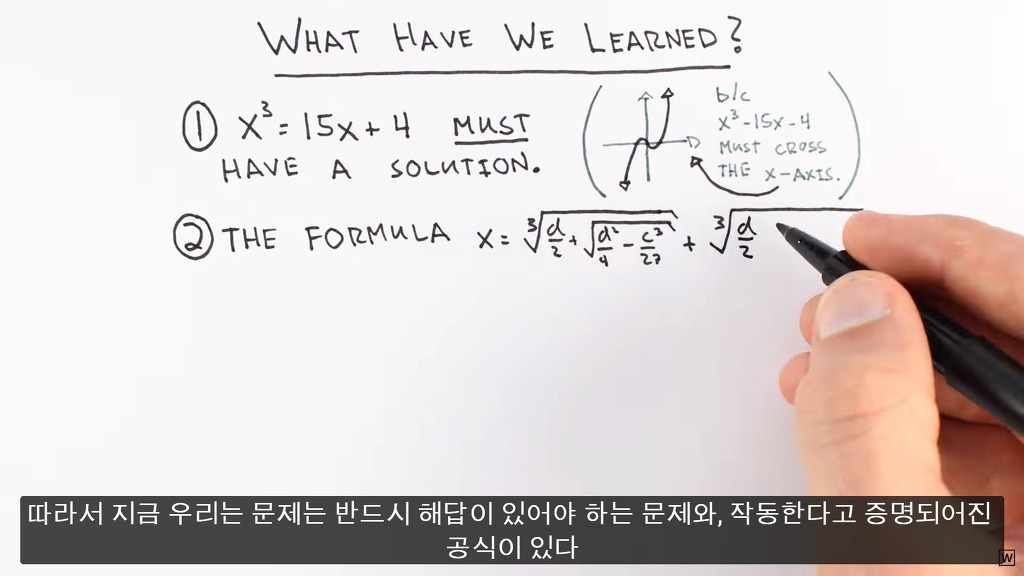 WHAT HAVE WE LEARNED?
① x³ = 15x + 4 MUST
HAVE A SOLUTION.
b/c
x³-15x-4
MUST CROSS
THE X-AXIS.
② THE FORMULA x = ∛(d/2 + √(d²/4 - c³/27)) + ∛(d/2
따라서 지금 우리는 문제는 반드시 해답이 있어야 하는 문제와, 작동한다고 증명되어진
공식이 있다
W